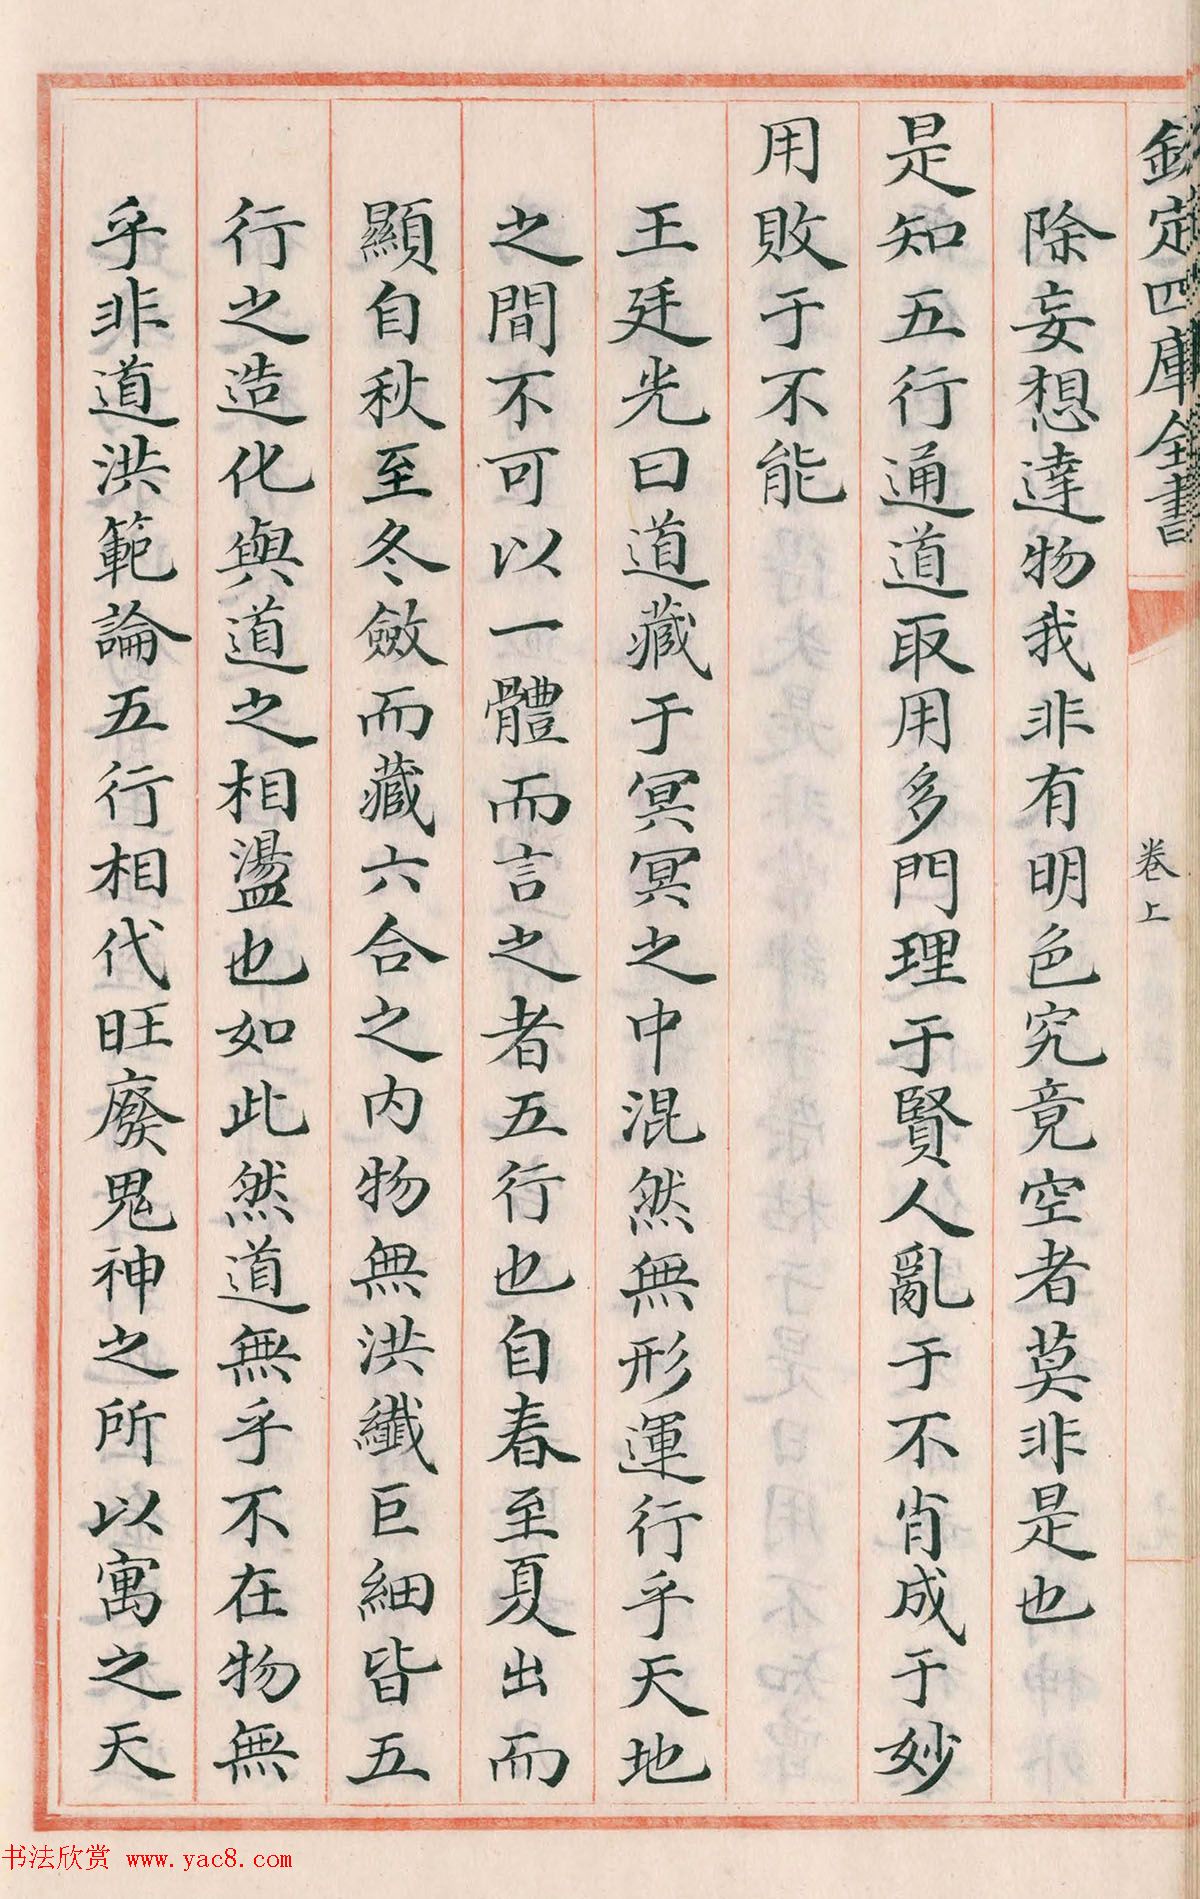 欽定四庫全書
卷上
除妄想達物我非有明色究竟空者莫非是也
是知五行通道取用多門理于賢人亂于不肖成于妙
用敗于不能
王廷光曰道藏于冥冥之中混然無形運行乎天地
之間不可以一體而言之者五行也自春至夏出而
顯自秋至冬斂而藏六合之内物無洪纖巨細皆五
行之造化與道之相盪也如此然道無乎不在物無
乎非道洪範論五行相代旺廢鬼神之所以寓之天
书法欣赏 www.yac8.com